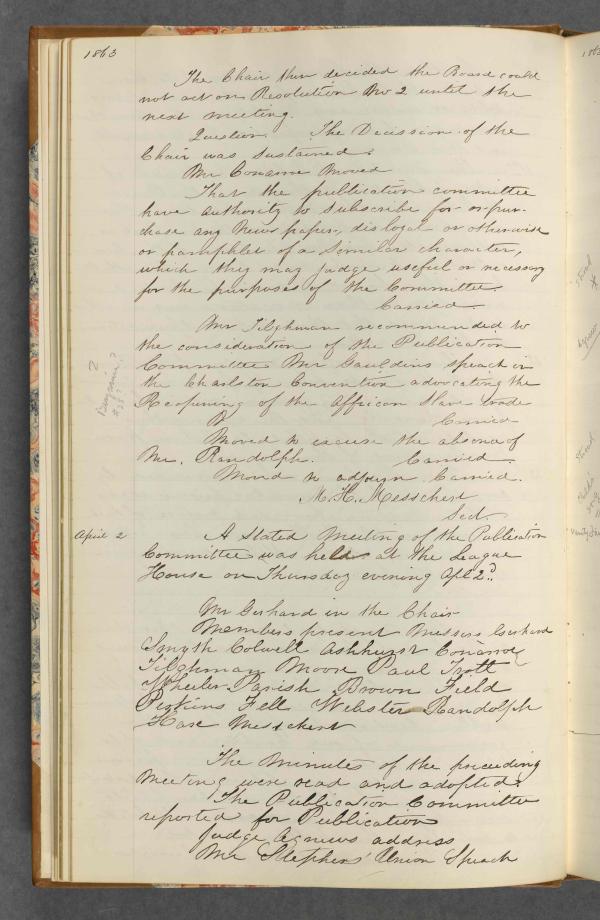 1863
The Chair then decided the Board could
not act on Resolution No 2 until the
next meeting.
Question The Decission of the
Chair was sustained.
Mr Conarroe Moved
That the publication committee
have authority to subscribe for or pur-
chase any News paper, disloyal or otherwise
or pamphlet of a similar character,
which they may judge useful or necessary
for the purposes of the Committee.
Carried
Mr Tilghman recommended to
the consideration of the Publication
Committee Mr Gauldins speach in
the Charlston Convention advocating the
Reopening of the Affrican Slave trade
Carried
Moved to excuse the absence of
Mr. Randolph. Carried.
Moved to adjourn Carried.
M. H. Messchert
Sect.
April 2
A Stated Meeting of the Publication
Committee was held at the League
House on Thursday evening Apl 2d.
Mr Gerhard in the Chair
Members present Messers Gerhard
Smyth Colwell Ashhurst Conarroe
Tilghman Moore Paul Trott
Wheeler Parish Brown Field
Perkins Fell Webster Randolph
Hare Messchert
The Minutes of the preceeding
Meeting were read and adopted.
The Publication Committee
reported for Publication
Judge Agnews address
Mr Stephens' Union Speach